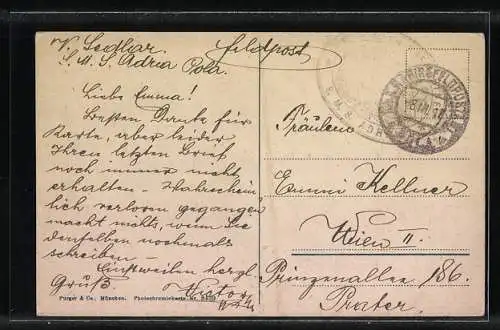 V. Sedlar.
S.M.S. Adria Pola.
Feldpost
Liebe Emma!
Besten Dank für
Karte, aber leider
Ihren letzten Brief
noch immer nicht
erhalten - Wahrschein-
lich verloren gegangen
macht nichts, wenn Sie
denselben nochmals
schreiben -
Einstweilen herzl.
Gruß Viktor
Purger & Co., München. Photochromiekarte Nr.
S.M.S. ADR
Fräulein
Emmi Kellner
Wien II.
Prinzenallee 186.
Prater.